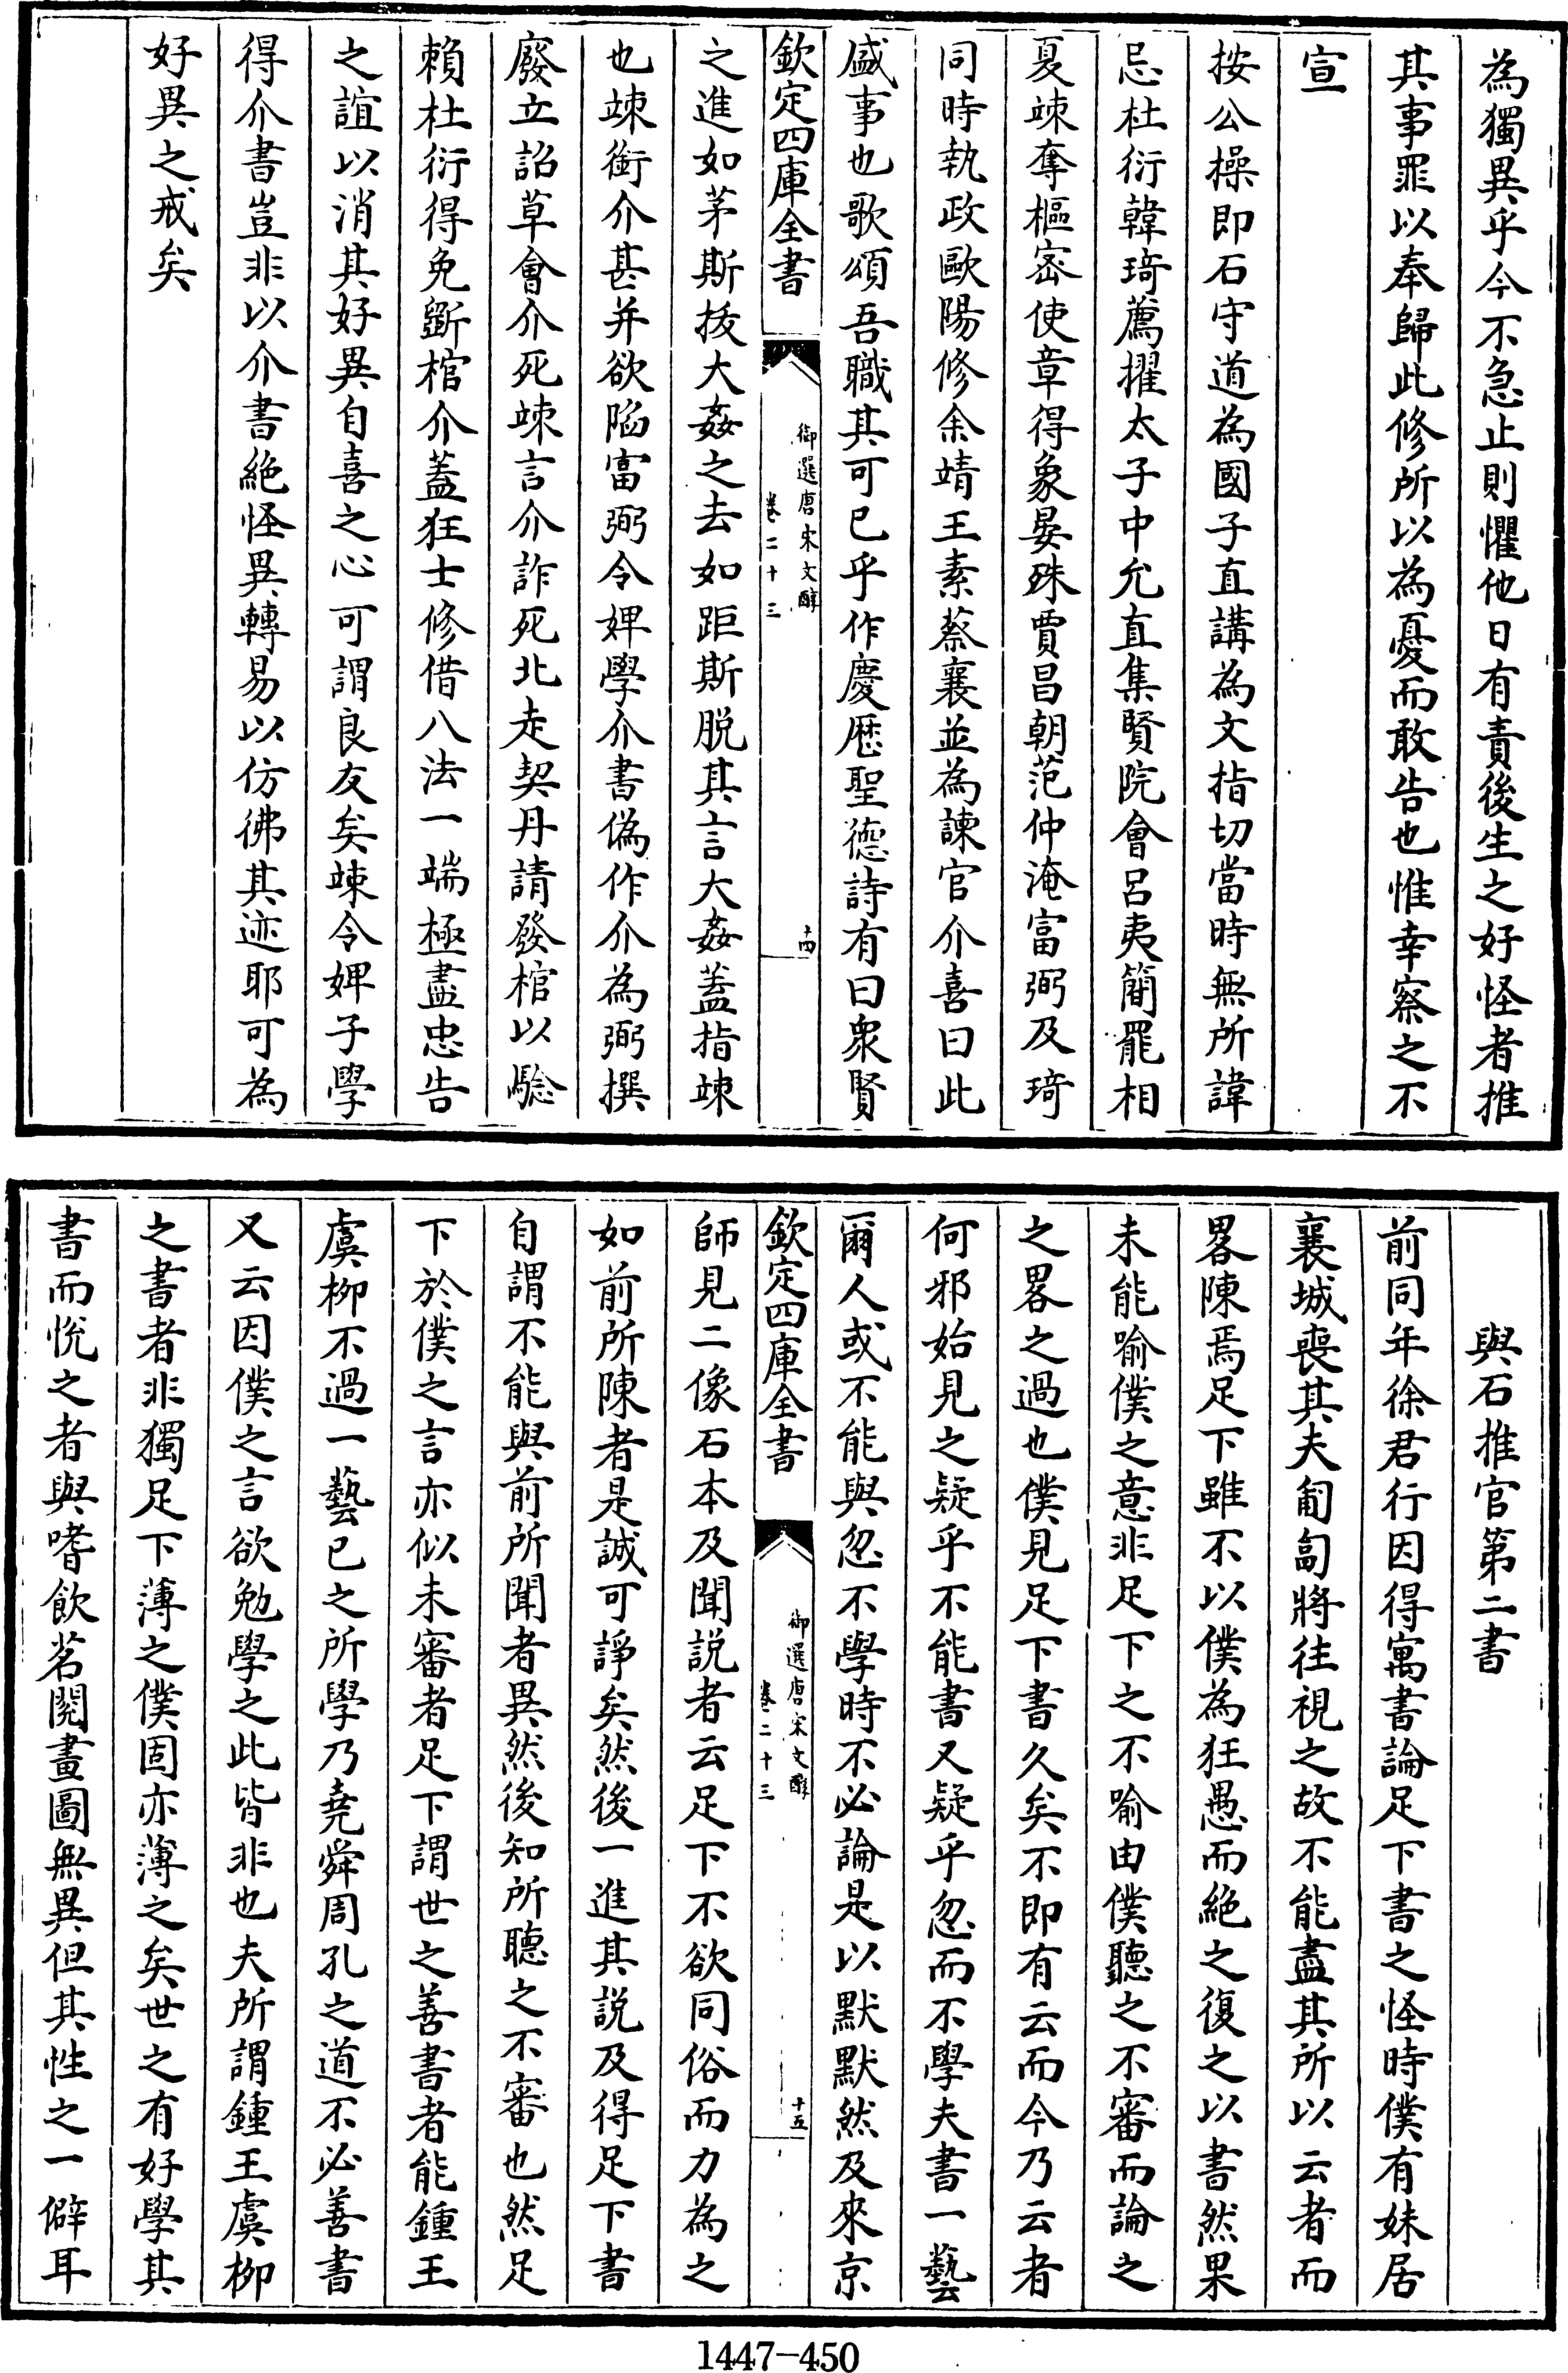 為獨異乎今不急止則懼他日有責後生之好怪者推
其事罪以奉歸此修所以為憂而敢告也惟幸察之不
宣
按公操即石守道為國子直講為文指切當時無所諱
忌杜衍韓琦薦擢太子中允直集賢院會呂夷簡罷相
夏竦奪樞密使章得象晏殊賈昌朝范仲淹富弼及琦
同時執政歐陽修余靖王素蔡襄並為諫官介喜曰此
盛事也歌頌吾職其可已乎作慶厯聖德詩有曰衆賢
欽定四庫全書
御選唐宋文醇
卷二十三
十四
之進如茅斯拔大姦之去如距斯脱其言大姦蓋指竦
也竦銜介甚并欲陷富弼令婢學介書偽作介為弼撰
廢立詔草會介死竦言介詐死北走契丹請發棺以驗
賴杜衍得免斲棺介蓋狂士修借八法一端極盡忠告
之誼以消其好異自喜之心可謂良友矣竦令婢子學
得介書豈非以介書絶怪異轉易以仿彿其迹耶可為
好異之戒矣
與石推官第二書
前同年徐君行因得寓書論足下書之怪時僕有妹居
襄城喪其夫匍匐將往視之故不能盡其所以云者而
畧陳焉足下雖不以僕為狂愚而絶之復之以書然果
未能喻僕之意非足下之不喻由僕聽之不審而論之
之畧之過也僕見足下書久矣不即有云而今乃云者
何邪始見之疑乎不能書又疑乎忽而不學夫書一藝
爾人或不能與忽不學時不必論是以默默然及來京
欽定四庫全書
御選唐宋文醇
卷二十三
十五
師見二像石本及聞説者云足下不欲同俗而力為之
如前所陳者是誠可諍矣然後一進其説及得足下書
自謂不能與前所聞者異然後知所聽之不審也然足
下於僕之言亦似未審者足下謂世之善書者能鍾王
虞柳不過一藝已之所學乃堯舜周孔之道不必善書
又云因僕之言欲勉學之此皆非也夫所謂鍾王虞柳
之書者非獨足下薄之僕固亦薄之矣世之有好學其
書而悦之者與嗜飲茗閱畫圖無異但其性之一僻耳
1447-450